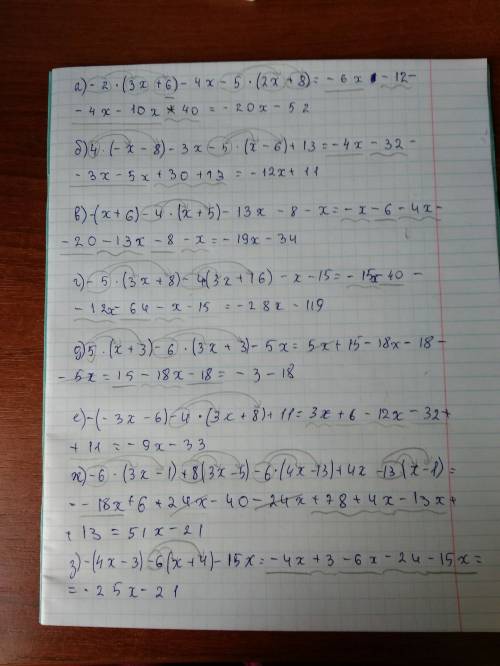 а) -2·(3x+6)-4x-5·(2x+8)=-6x-12-
-4x-10x-40=-20x-52
б) 4·(-x-8)-3x-5·(x-6)+13=-4x-32-
-3x-5x+30+13=-12x+11
в) -(x+6)-4·(x+5)-13x-8-x=-x-6-4x-
-20-13x-8-x=-19x-34
г) -5·(3x+8)-4(3x+16)-x-15=-15x-40-
-12x-64-x-15=-28x-119
д) 5·(x+3)-6·(3x+3)-5x=5x+15-18x-18-
-5x=15-18x-18=-3-18
е) -(-3x-6)-4·(3x+8)+11=3x+6-12x-32+
+11=-9x-33
ж) -6·(3x-1)+8(3x-5)-6·(4x-13)+4x-13(x-1)=
=-18x+6+24x-40-24x+78+4x-13x+
+13=51x-21
з) -(4x-3)-6(x+4)-15x=-4x+3-6x-24-15x=
=-25x-21